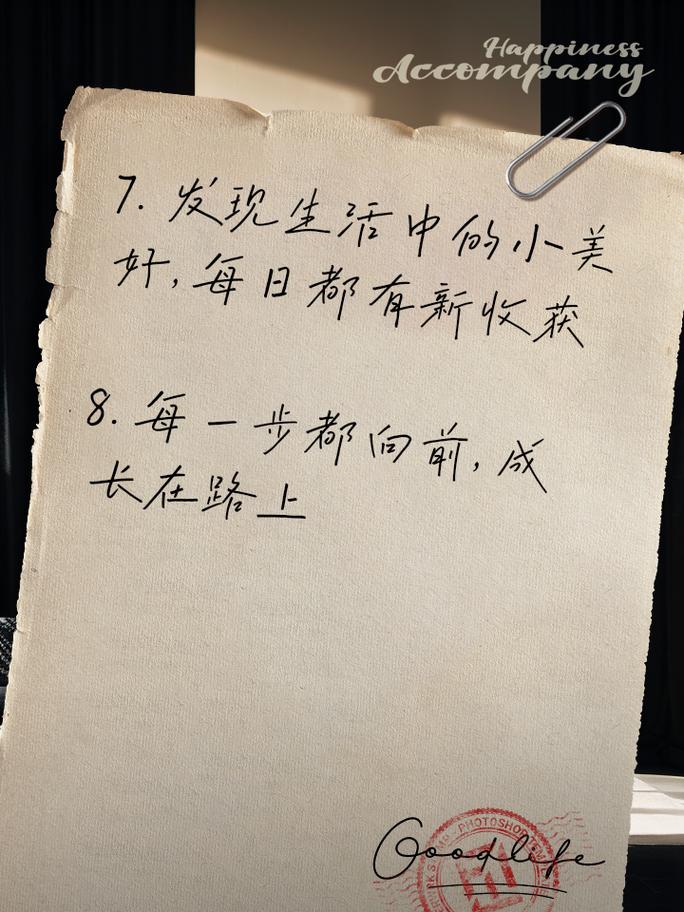 Happiness
Accompany
7. 发现生活中的小美
好,每日都有新收获
8. 每一步都向前,成
长在路上
PHOTOSHOP
Goodlife